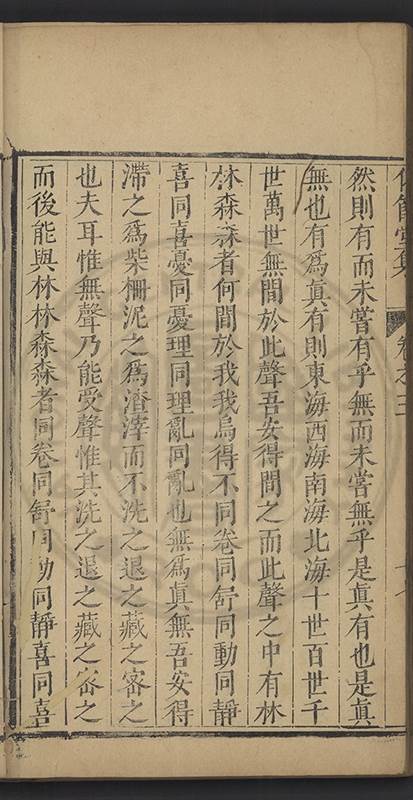 堂集 卷之三
然則有而未嘗有乎無而未嘗無乎是眞有也是眞
無也有爲眞有則東海西海南海北海十世百世千
世萬世無間於此聲吾安得間之而此聲之中有林
林森森者何間於我我烏得不同卷同舒同動同靜
喜同喜憂同憂理同理亂同亂也無爲眞無吾安得
滯之爲柴柵泥之爲渣滓而不洗之退之藏之密之
也夫耳惟無聲乃能受聲惟其洗之退之藏之密之
而後能與林林森森者同卷同舒同動同靜喜同喜